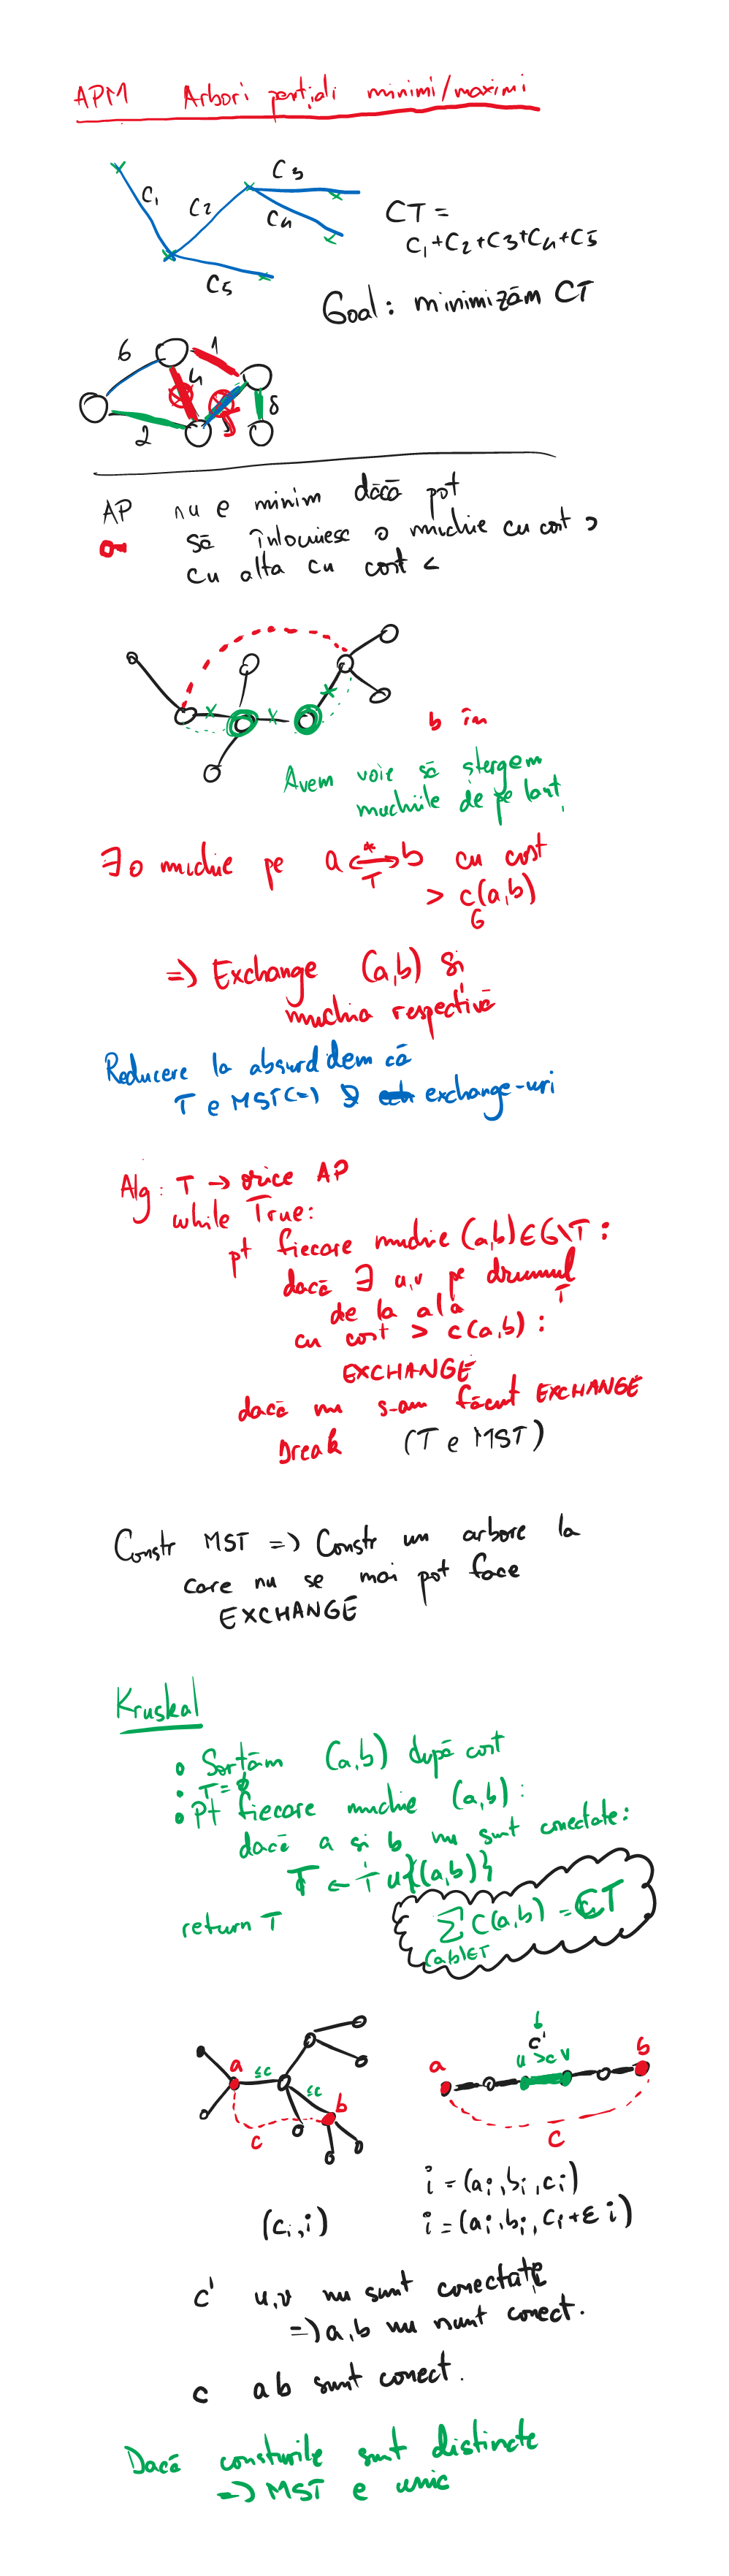 APM Arbori parțiali minimi/maximi
C1
C2
C3
C4
C5
CT =
C1+C2+C3+C4+C5
Goal: minimizăm CT
6
1
4
2
8
AP nu e minim dacă pot
să înlocuiesc o muchie cu cost >
cu alta cu cost <
b în
Avem voie să ștergem
muchiile de pe lanț
∃ o muchie pe a <-*-> b cu cost
T
> c(a,b)
G
=> Exchange (a,b) și
muchia respectivă
Reducere la absurd dem că
T e MST <=> ∄ exchange-uri
Alg: T -> orice AP
while True:
pt fiecare muchie (a,b) ∈ G\T :
dacă ∃ u,v pe drumul
T
de la a la
cu cost > c(a,b) :
EXCHANGE
dacă nu s-am făcut EXCHANGE
break (T e MST)
Constr MST => Constr un arbore la
care nu se mai pot face
EXCHANGE
Kruskal
• Sortăm (a,b) după cost
• T = ∅
• Pt fiecare muchie (a,b) :
dacă a și b nu sunt conectate:
T <- T ∪ {(a,b)}
return T
∑ C(a,b) = CT
(a,b)∈T
a
≤c
≤c
b
c
c'
a
u >c v
b
c
i = (ai, bi, ci)
(ci, i)
i = (ai, bi, ci+εi)
c' u,v nu sunt conectate
=> a,b nu nunt conect.
c a b sunt conect.
Dacă consturile sunt distincte
=> MST e unic